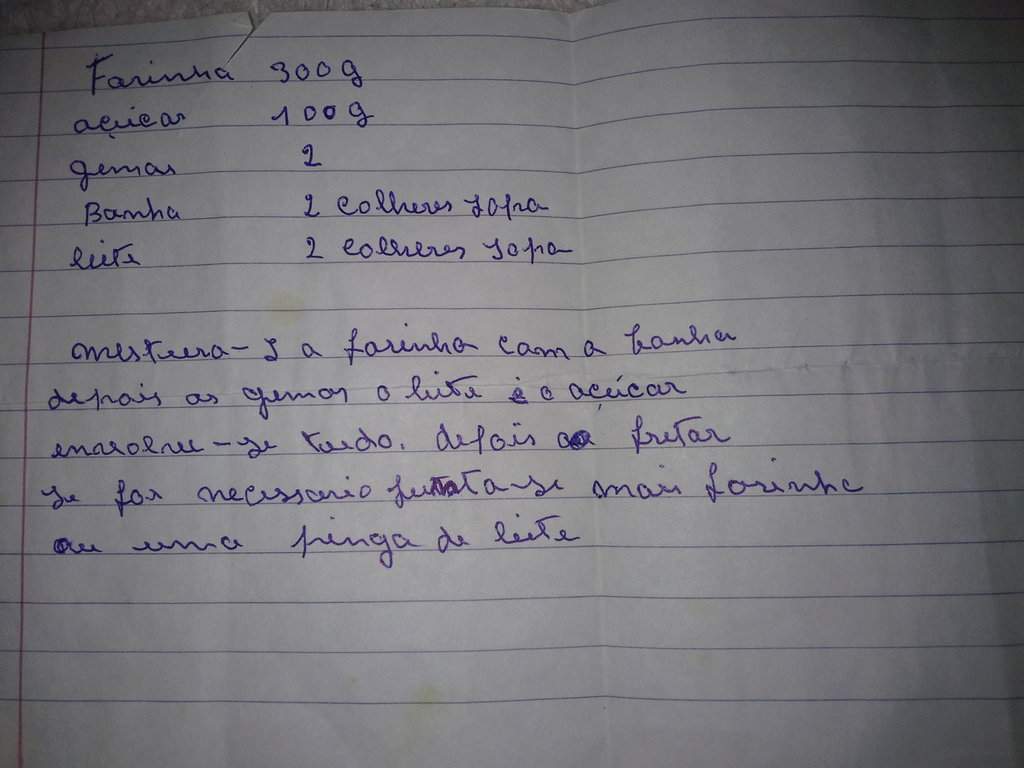 Farinha 300g
açúcar 100g
gemas 2
Banha 2 colheres sopa
leite 2 colheres sopa
mistura-s a farinha com a banha
depois as gemas o leite e o açúcar
envolve-se tudo. depois fretar
se for necessario junta-se mais farinha
ou uma pinga de leite